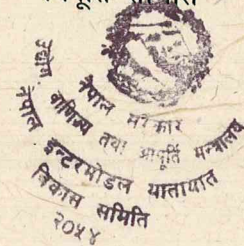 नेपाल सरकार
उद्योग वाणिज्य तथा आपूर्ति मन्त्रालय
नेपाल इन्टरमोडल यातायात
विकास समिति
२०५४